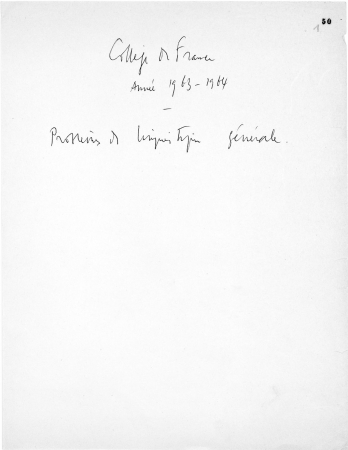 1 50
Collège de France
Année 1963-1964
–
Problèmes de linguistique générale.